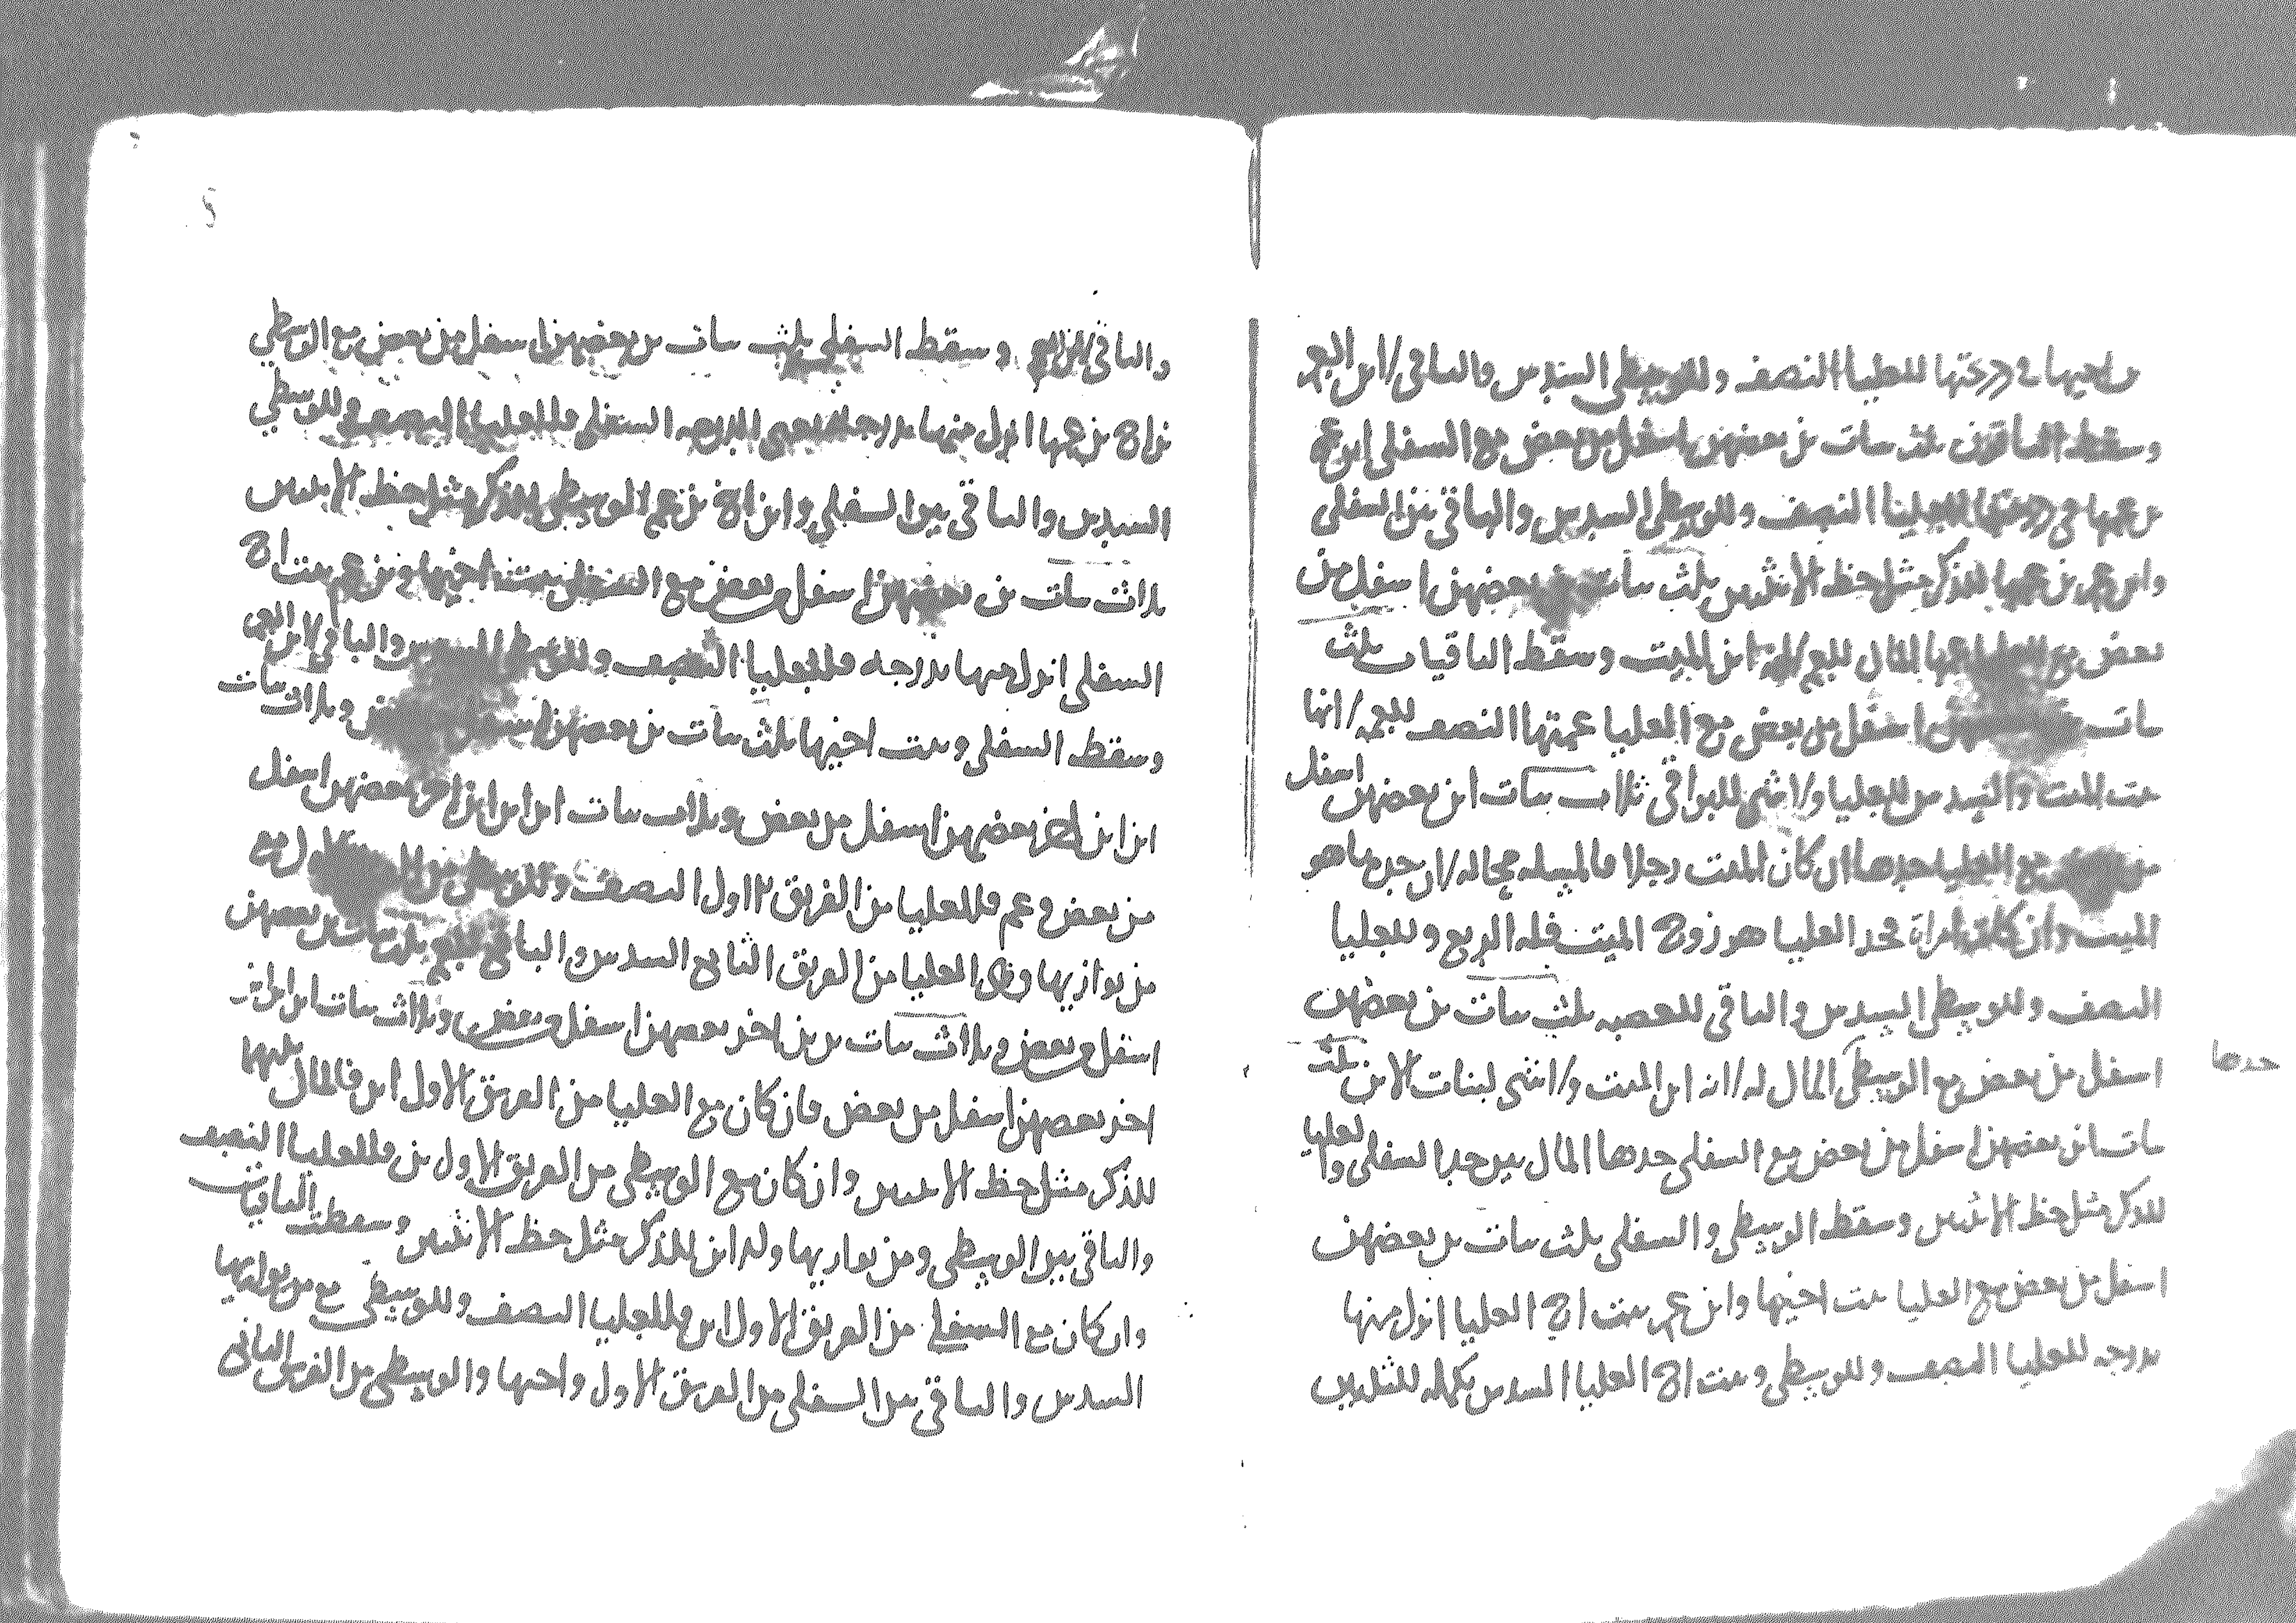 من اخيها في درجتها للعليا النصف وللوسطى السدس والباقي لابن العم
وسقط الباقون ثلث بنات بن بعضهن اسفل من بعض مع السفلى ابن عم
من عمها في درجتها للعليا النصف وللوسطى السدس والباقي بين السفلى
وابن عم من عمها للذكر مثل حظ الانثيين ثلث بنات بعضهن اسفل من
بعض مع العليا عمها المال للعم لانه ابن الميت وسقط الباقيات ثلث
بنات اسفل من بعض مع العليا عمتها النصف للعمه لانها
بنت الميت والسدس للعليا ولا شي للبواقي ثلاث بنات ابن بعضهن اسفل
من مع العليا جدها ان كان الميت رجلا فالمسله محاله لان جدها هو
الميت وان كانت امراة فجد العليا هو زوج الميت فله الربع وللعليا
النصف وللوسطى السدس والباقي للعصبه ثلث بنات بن بعضهن
اسفل من بعض مع الوسطى المال له لانه ابن الميت ولا شي لبنات الابن ثلث
جدها
بنات ابن بعضهن اسفل من بعض مع السفلى جدها المال بين جد السفلى والعليا
للذكر مثل حظ الانثيين وسقط الوسطى والسفلى ثلث بنات بن بعضهن
اسفل من بعض مع العليا بنت اخيها وابن عم بنت اخ العليا انزل منها
بدرجه للعليا النصف وللوسطى وبنت اخ العليا السدس تكملة للثلثين
والباقي لابن العم وسقط السفلى ثلث بنات بن بعضهن اسفل من بعض مع الوسطى
بن اخ بن عمها انزل منها بدرجة السفلى فللعليا النصف وللوسطى
السدس والباقي بين السفلى وابن اخ بن عم الوسطى للذكر مثل حظ الانثيين
ثلاث بنات بن بعضهن اسفل بعض مع السفلى بنت اخيها وبن عم بنت اخ
السفلى انزل منها بدرجه فللعليا النصف وللوسطى السدس والباقي لابن العم
وسقط السفلى وبنت اخيها ثلث بنات بن بعضهن اسفل وثلاث بنات
ابن ابن اخر بعضهن اسفل من بعض وثلاث بنات ابن ابن ابن اخر بعضهن اسفل
من بعض وعم فللعليا من الفريق الاول النصف وللوسطى من الاول مع
من يوازيها وهي العليا من الفريق الثاني السدس والباقي للعم ثلث بنات بن بعضهن
اسفل من بعض وثلاث بنات بن بن اخر بعضهن اسفل من بعض وثلاث بنات ابن ابن ابن
اخر بعضهن اسفل من بعض فان كان مع العليا من الفريق الاول ابن فالمال بينهما
للذكر مثل حظ الانثيين وان كان مع الوسطى من الفريق الاول بن فللعليا النصف
والباقي بين الوسطى ومن يوازيها وله ابن للذكر مثل حظ الانثيين وسقطت الباقيات
وان كان مع السفلى من الفريق الاول ابن فللعليا النصف وللوسطى مع من يوازيها
السدس والباقي بين السفلى من الفريق الاول واخيها والوسطى من الفريق الثاني